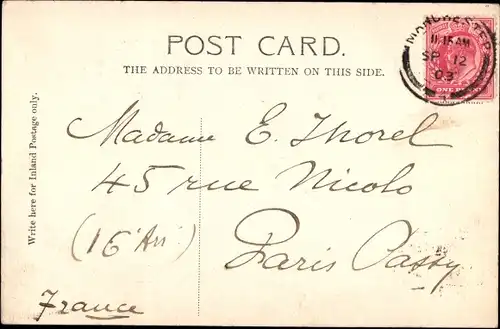 POST CARD.
THE ADDRESS TO BE WRITTEN ON THIS SIDE.
MANCHESTER
11.15 AM
SP 12
03
ONE PENNY
Write here for Inland Postage only.
Madame E. Thorel
45 rue Nicolo
(16 Arr)
Paris Passy
France